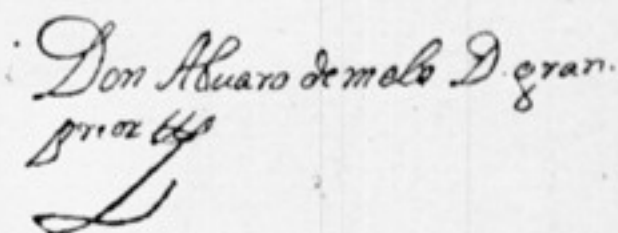 Don Aluaro de melo D. gran.
prior